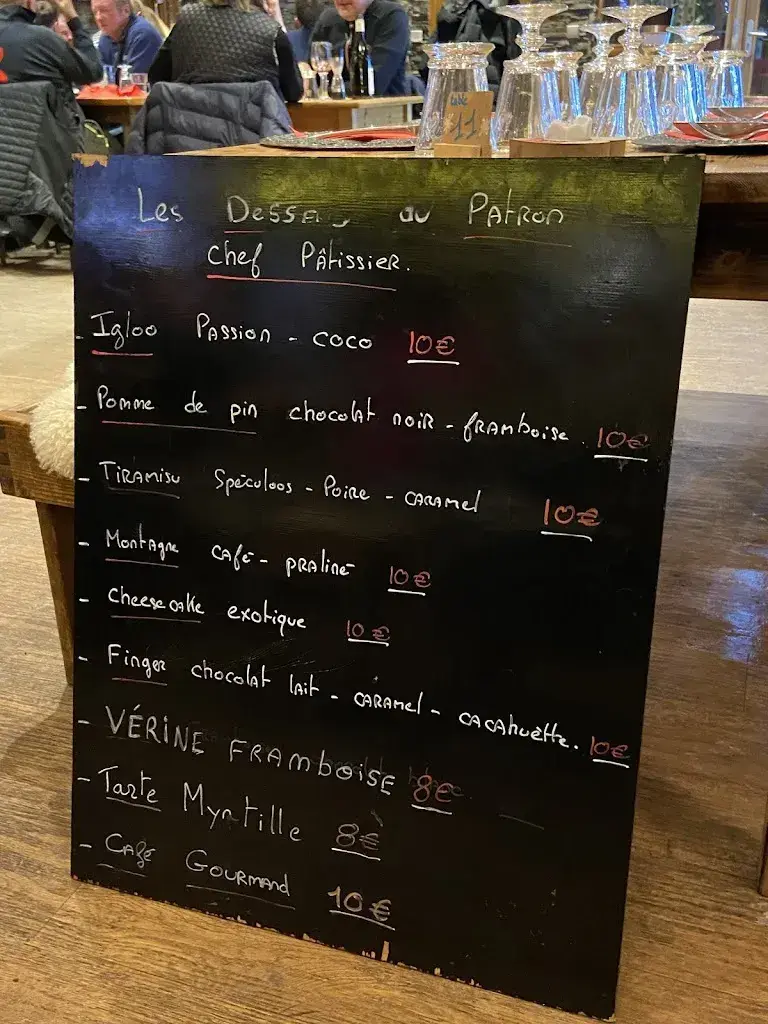 Les Desse au Patron
Chef Pâtissier.
- Igloo Passion - coco 10€
- Pomme de pin chocolat noir - framboise. 10€
- Tiramisu Spéculoos - Poire - caramel 10€
- Montagne café - praliné 10€
- Cheesecake exotique 10€
- Finger chocolat lait - caramel - cacahuètte. 10€
- VÉRINE FRAMboiSE 8€
- Tarte Myrtille 8€
- Café Gourmand 10€
11